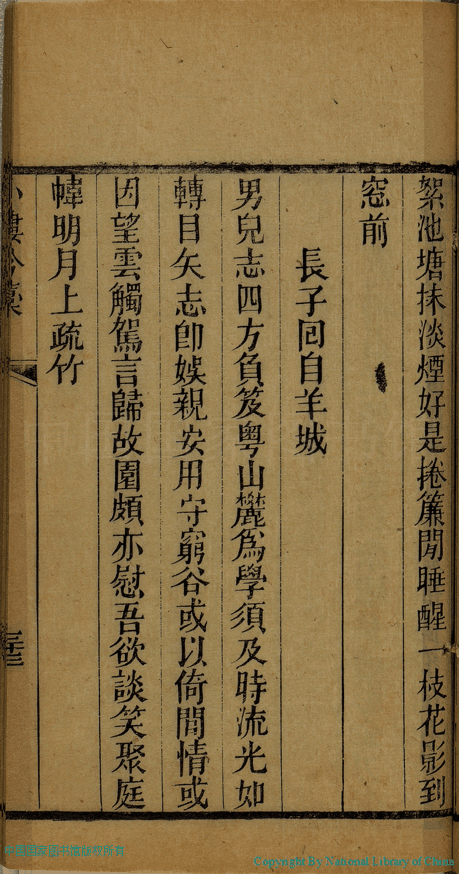 絮池塘抹淡煙好是捲簾閒睡醒一枝花影到
窓前
長子回自羊城
男兒志四方負笈粵山麓爲學須及時流光如
轉目矢志卽娛親安用守窮谷或以倚閭情或
因望雲觸駕言歸故園頗亦慰吾欲談笑聚庭
幃明月上疏竹
小樓吟稾
Copyright By National Library of China